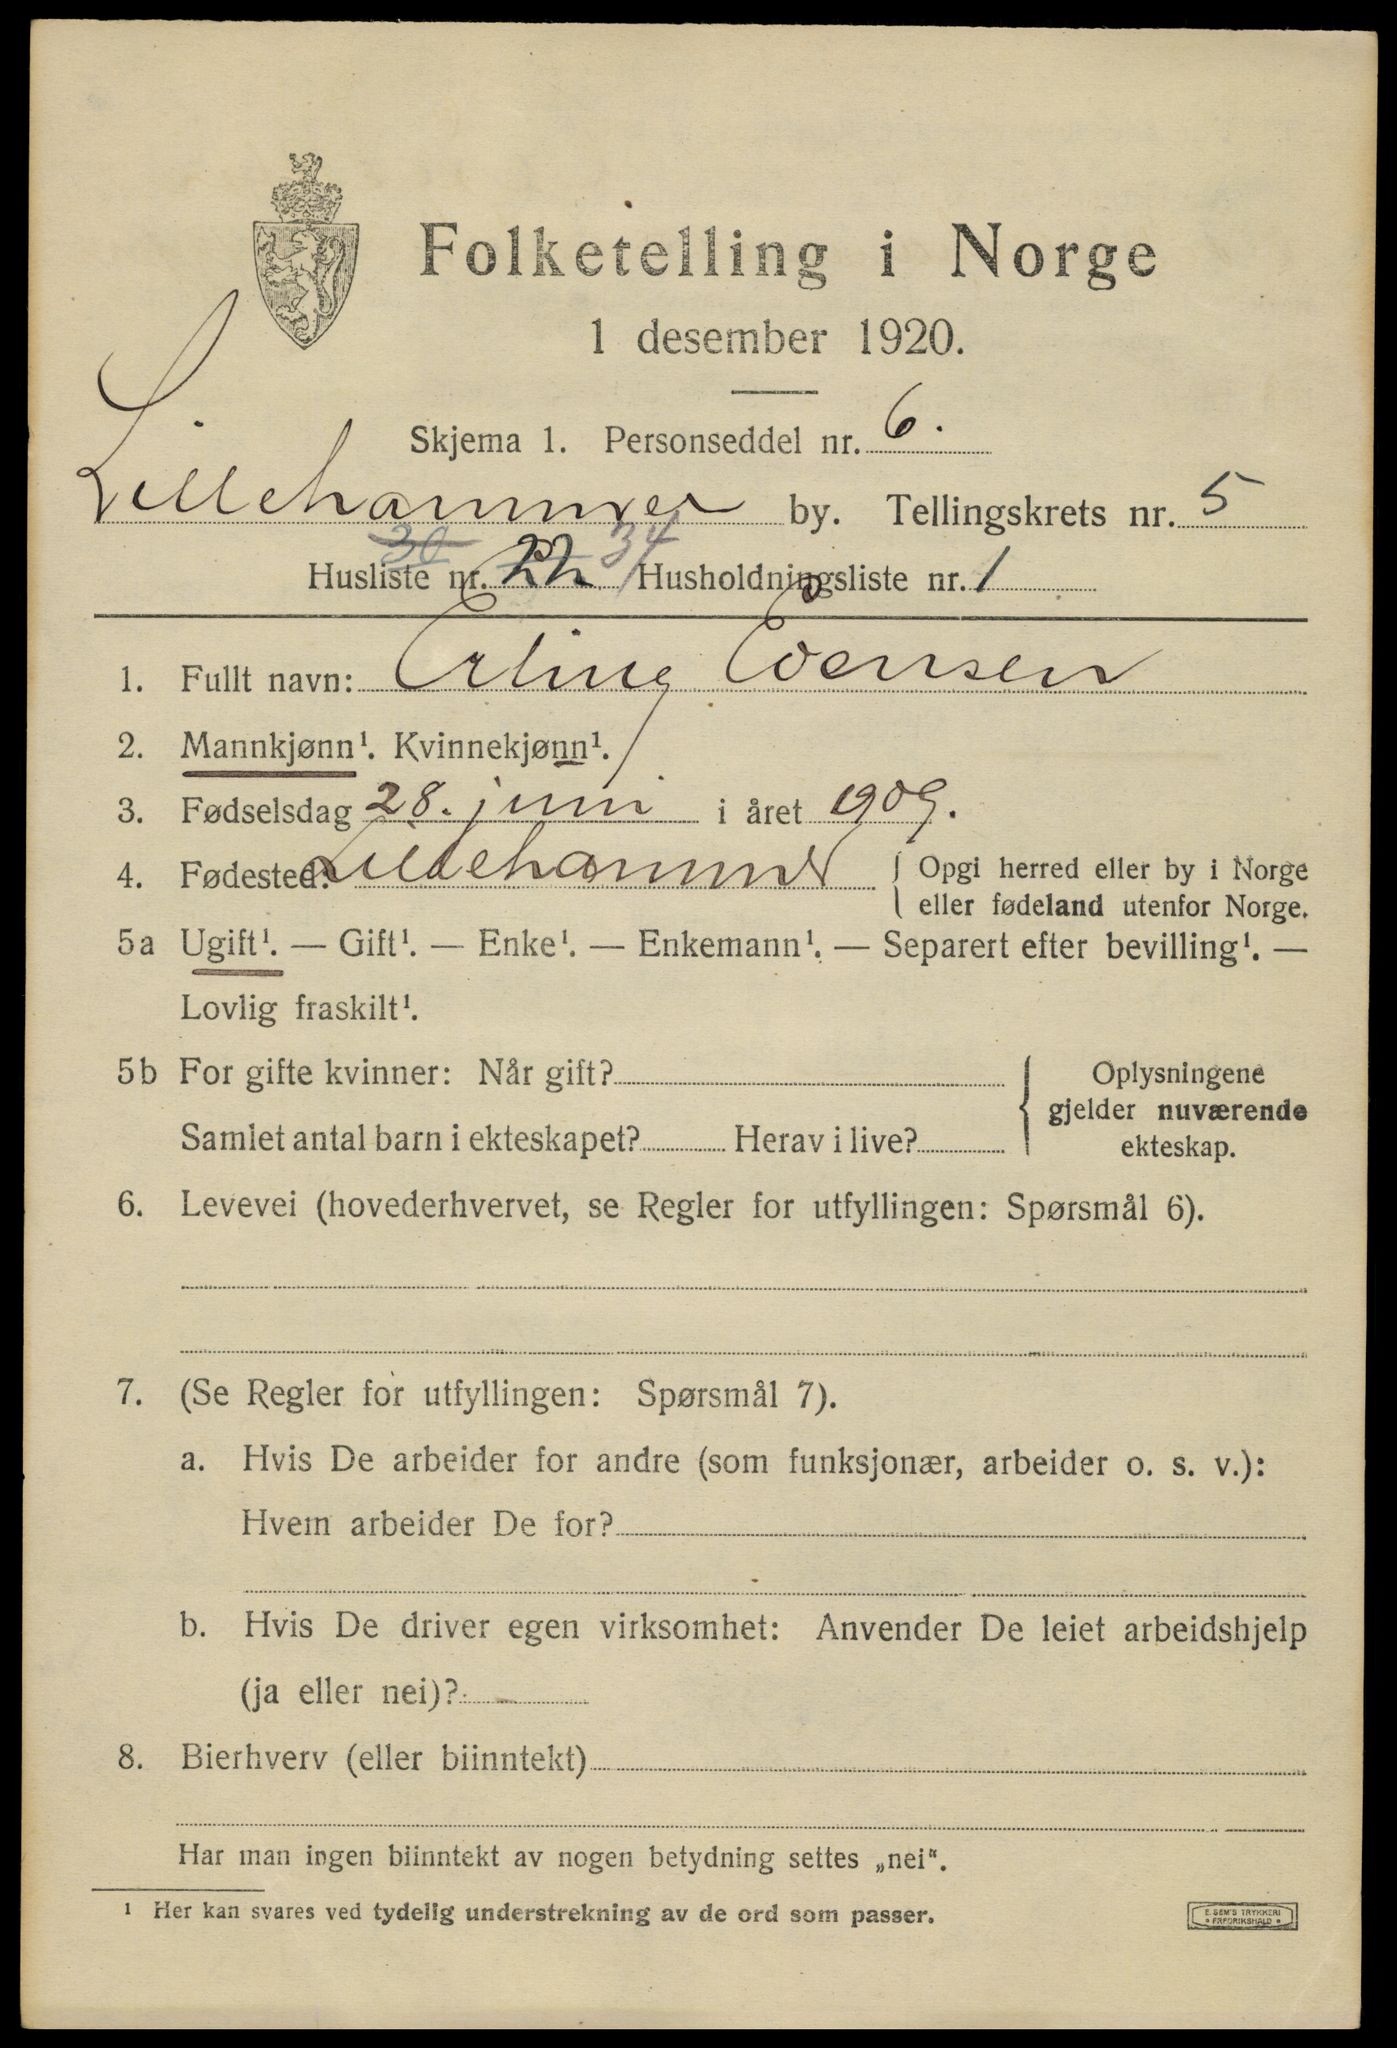 Folketelling i Norge
1 desember 1920.
Skjema 1. Personseddel nr. 6.
Lillehammer by. Tellingskrets nr. 5
30 34
Husliste nr. 22 Husholdningsliste nr. 1
1. Fullt navn: Erling Evensen
2. Mannkjønn¹. Kvinnekjønn¹.
3. Fødselsdag 28. juni i året 1909.
4. Fødested: Lillehammer { Opgi herred eller by i Norge
eller fødeland utenfor Norge.
5a Ugift¹. — Gift¹. — Enke¹. — Enkemann¹. — Separert efter bevilling¹. —
Lovlig fraskilt¹.
5b For gifte kvinner: Når gift?
Samlet antal barn i ekteskapet? Herav i live?
Oplysningene
gjelder nuværende
ekteskap.
6. Levevei (hovederhvervet, se Regler for utfyllingen: Spørsmål 6).
7. (Se Regler for utfyllingen: Spørsmål 7).
a. Hvis De arbeider for andre (som funksjonær, arbeider o. s. v.):
Hvem arbeider De for?
b. Hvis De driver egen virksomhet: Anvender De leiet arbeidshjelp
(ja eller nei)?
8. Bierhverv (eller biinntekt)
Har man ingen biinntekt av nogen betydning settes „nei“.
¹ Her kan svares ved tydelig understrekning av de ord som passer.
E. SEM'S TRYKKERI
• FREDRIKSHALD •